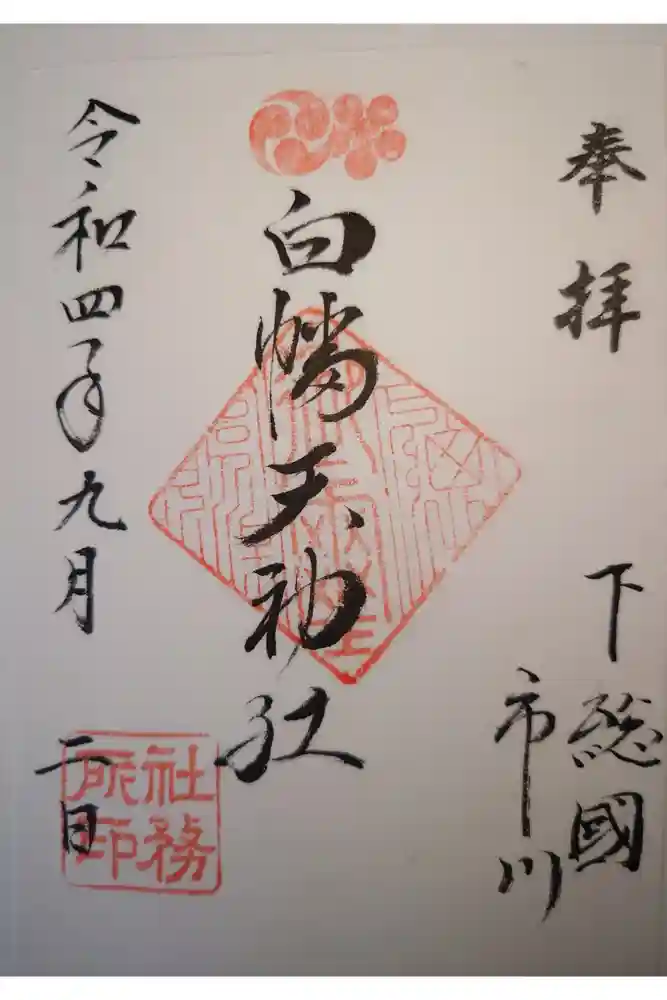 奉拝
下総國
市川
白幡天神社
令和四年九月二日
社務
所印